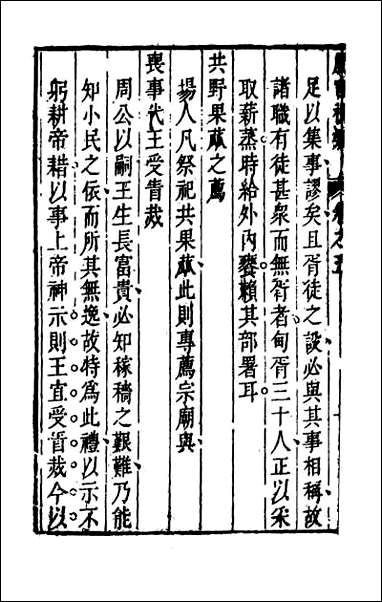 足以集事謬矣且胥徒之設必與其事相稱故
諸職有徒甚衆而無胥者甸胥三十人正以采
取薪蒸時給外內饔賴其部署耳
共野果蓏之薦
場人凡祭祀共果蓏此則專薦宗廟與
喪事代王受眚烖
周公以嗣王生長富貴必知稼穡之艱難乃能
知小民之依而所其無逸故特爲此禮以示不
躬耕帝耤以事上帝神示則王宜受眚烖今以